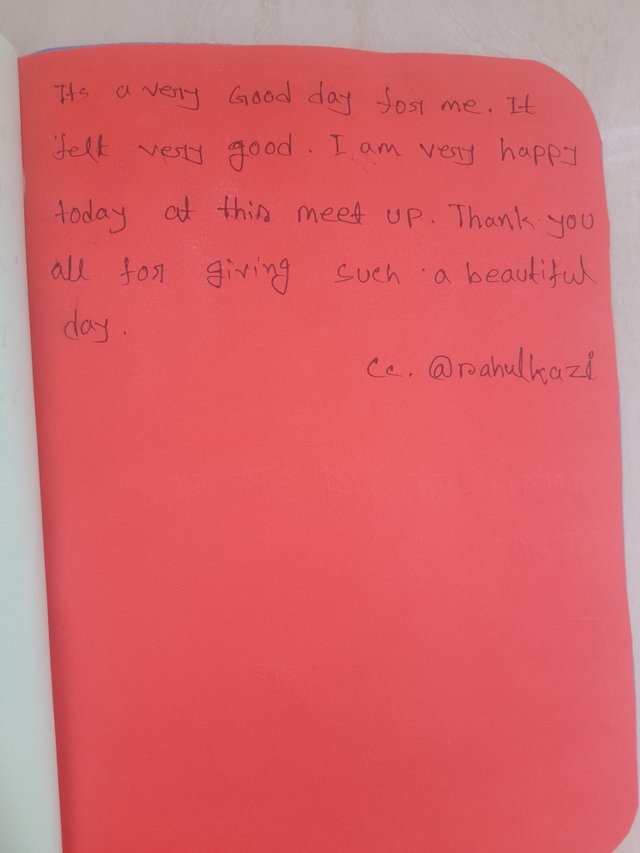 Its a very Good day for me. It
felt very good. I am very happy
today at this meet up. Thank you
all for giving such a beautiful
day.
cc. @rahulkazi